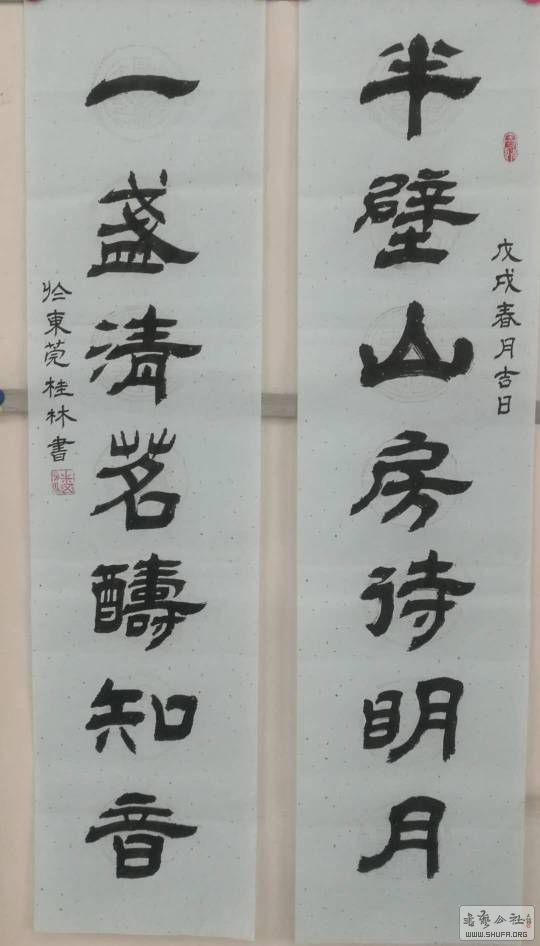 半壁山房待明月
戊戌春月吉日
一盏清茗醻知音
於東莞桂林書
书艺公社
WWW.SHUFA.ORG